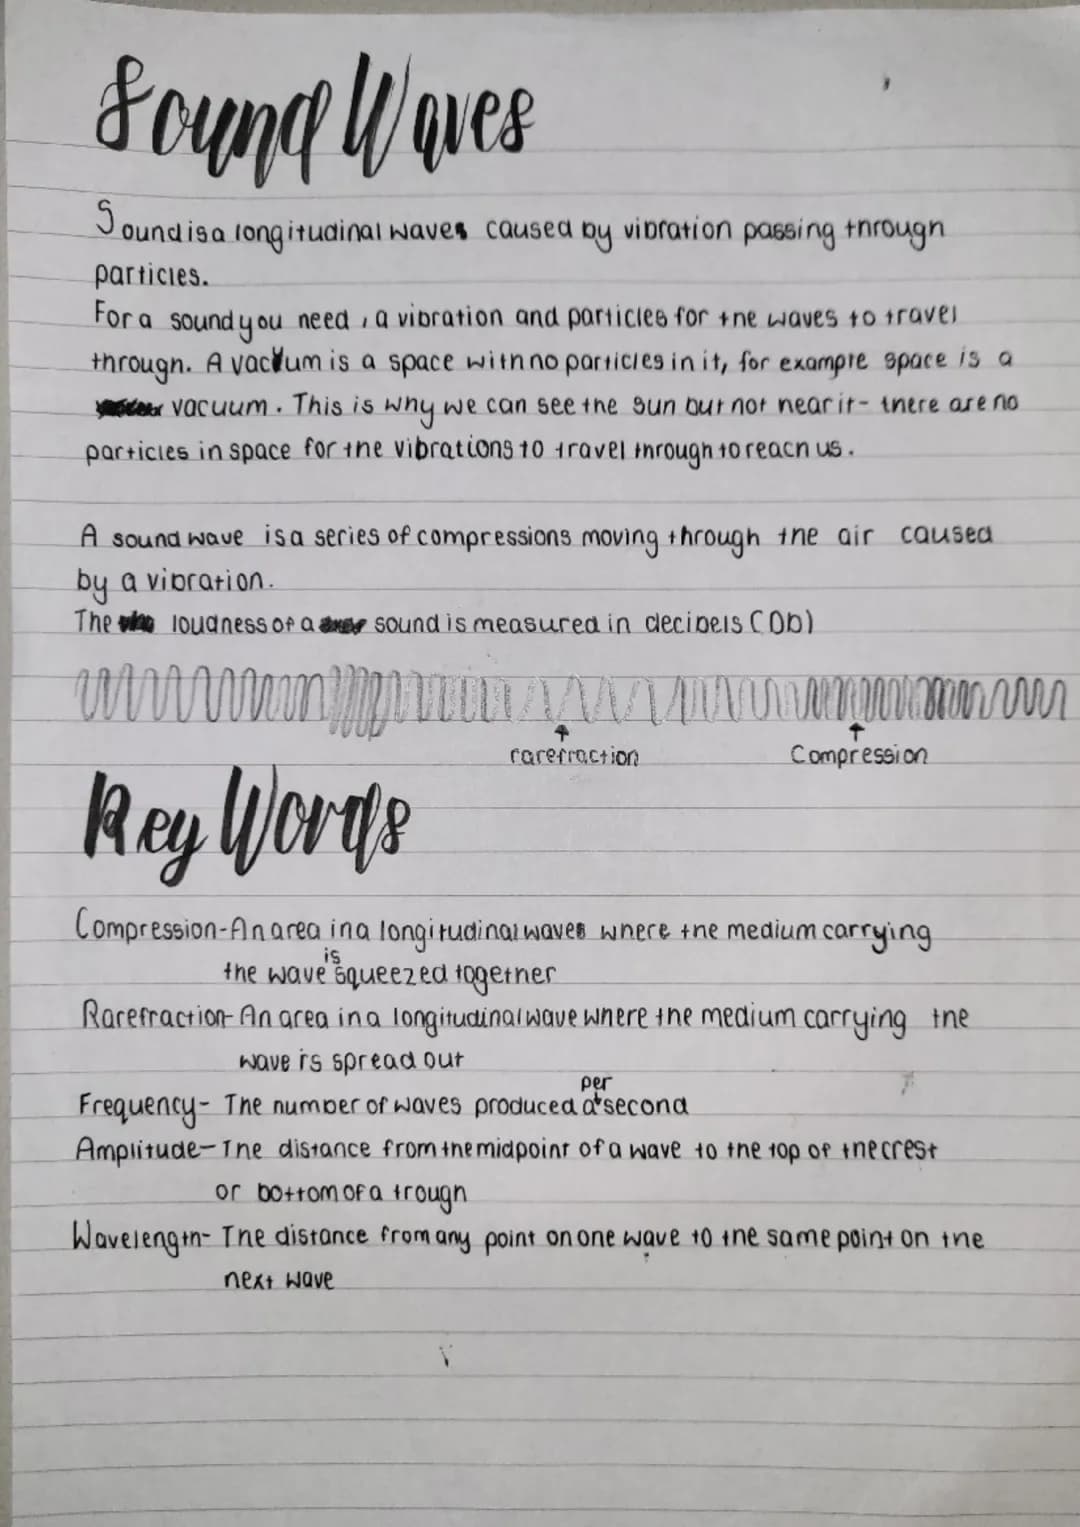 Sound Waves
Sound is a longitudinal waves caused by vibration passing through
particles.
For a sound you need , a vibration and particles for the waves to travel
through. A vacuum is a space with no particles in it, for example space is a
vacuum. This is why we can see the sun but not hear it- there are no
particles in space for the vibrations to travel through to reach us.
A sound wave is a series of compressions moving through the air caused
by a vibration.
The loudness of a sound is measured in decibels (Db)
rarefraction
Compression
Key Words
Compression-An area in a longitudinal waves where the medium carrying
the wave is squeezed together
Rarefraction- An area in a longitudinal wave where the medium carrying the
wave is spread out
Frequency- The number of waves produced per second
Amplitude- The distance from the midpoint of a wave to the top of the crest
or bottom of a trough
Wavelength- The distance from any point on one wave to the same point on the
next wave